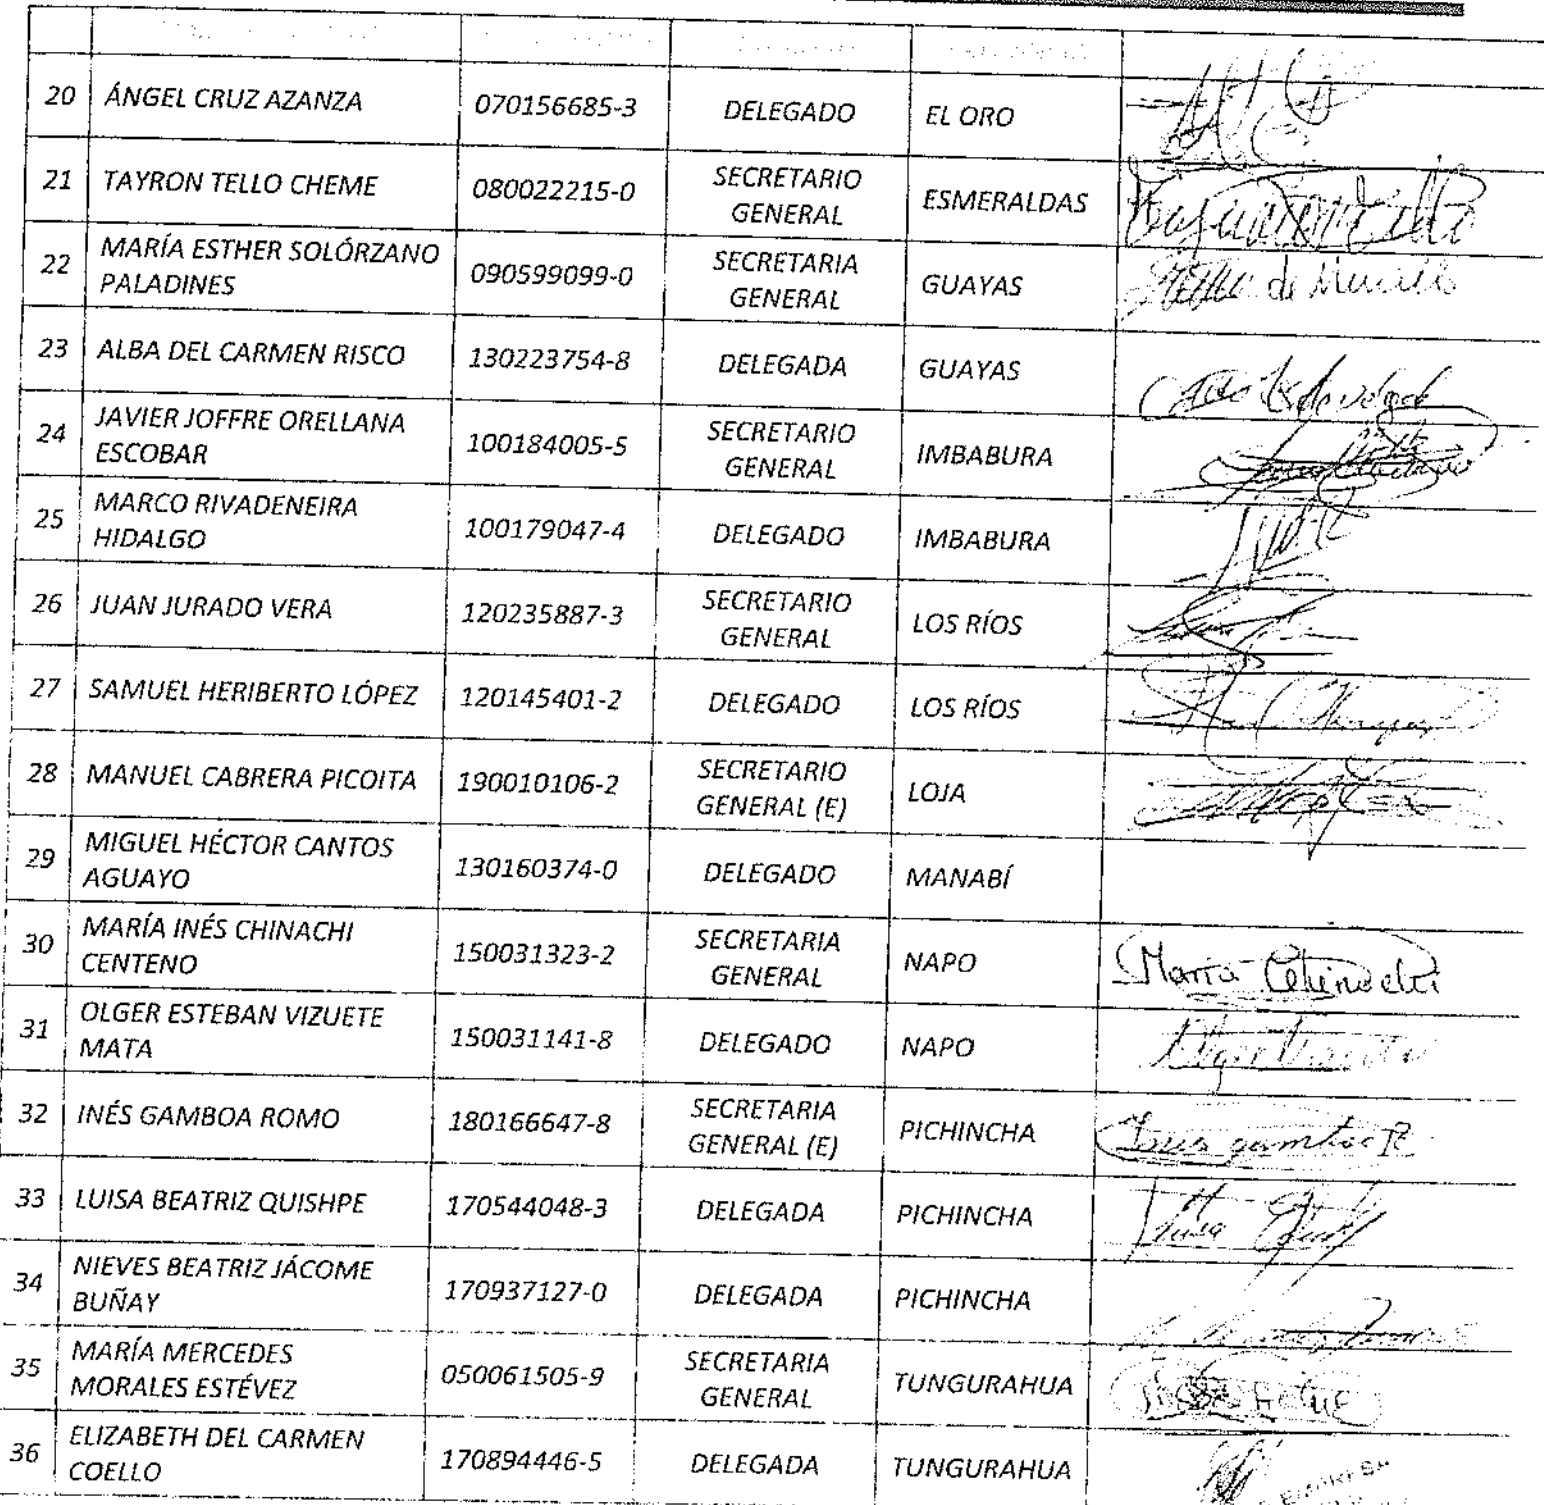 20 ÁNGEL CRUZ AZANZA 070156685-3 DELEGADO EL ORO
21 TAYRON TELLO CHEME 080022215-0 SECRETARIO GENERAL ESMERALDAS
22 MARÍA ESTHER SOLÓRZANO PALADINES 090599099-0 SECRETARIA GENERAL GUAYAS
23 ALBA DEL CARMEN RISCO 130223754-8 DELEGADA GUAYAS
24 JAVIER JOFFRE ORELLANA ESCOBAR 100184005-5 SECRETARIO GENERAL IMBABURA
25 MARCO RIVADENEIRA HIDALGO 100179047-4 DELEGADO IMBABURA
26 JUAN JURADO VERA 120235887-3 SECRETARIO GENERAL LOS RÍOS
27 SAMUEL HERIBERTO LÓPEZ 120145401-2 DELEGADO LOS RÍOS
28 MANUEL CABRERA PICOITA 190010106-2 SECRETARIO GENERAL (E) LOJA
29 MIGUEL HÉCTOR CANTOS AGUAYO 130160374-0 DELEGADO MANABÍ
30 MARÍA INÉS CHINACHI CENTENO 150031323-2 SECRETARIA GENERAL NAPO María Chinachi
31 OLGER ESTEBAN VIZUETE MATA 150031141-8 DELEGADO NAPO
32 INÉS GAMBOA ROMO 180166647-8 SECRETARIA GENERAL (E) PICHINCHA
33 LUISA BEATRIZ QUISHPE 170544048-3 DELEGADA PICHINCHA
34 NIEVES BEATRIZ JÁCOME BUÑAY 170937127-0 DELEGADA PICHINCHA
35 MARÍA MERCEDES MORALES ESTÉVEZ 050061505-9 SECRETARIA GENERAL TUNGURAHUA
36 ELIZABETH DEL CARMEN COELLO 170894446-5 DELEGADA TUNGURAHUA